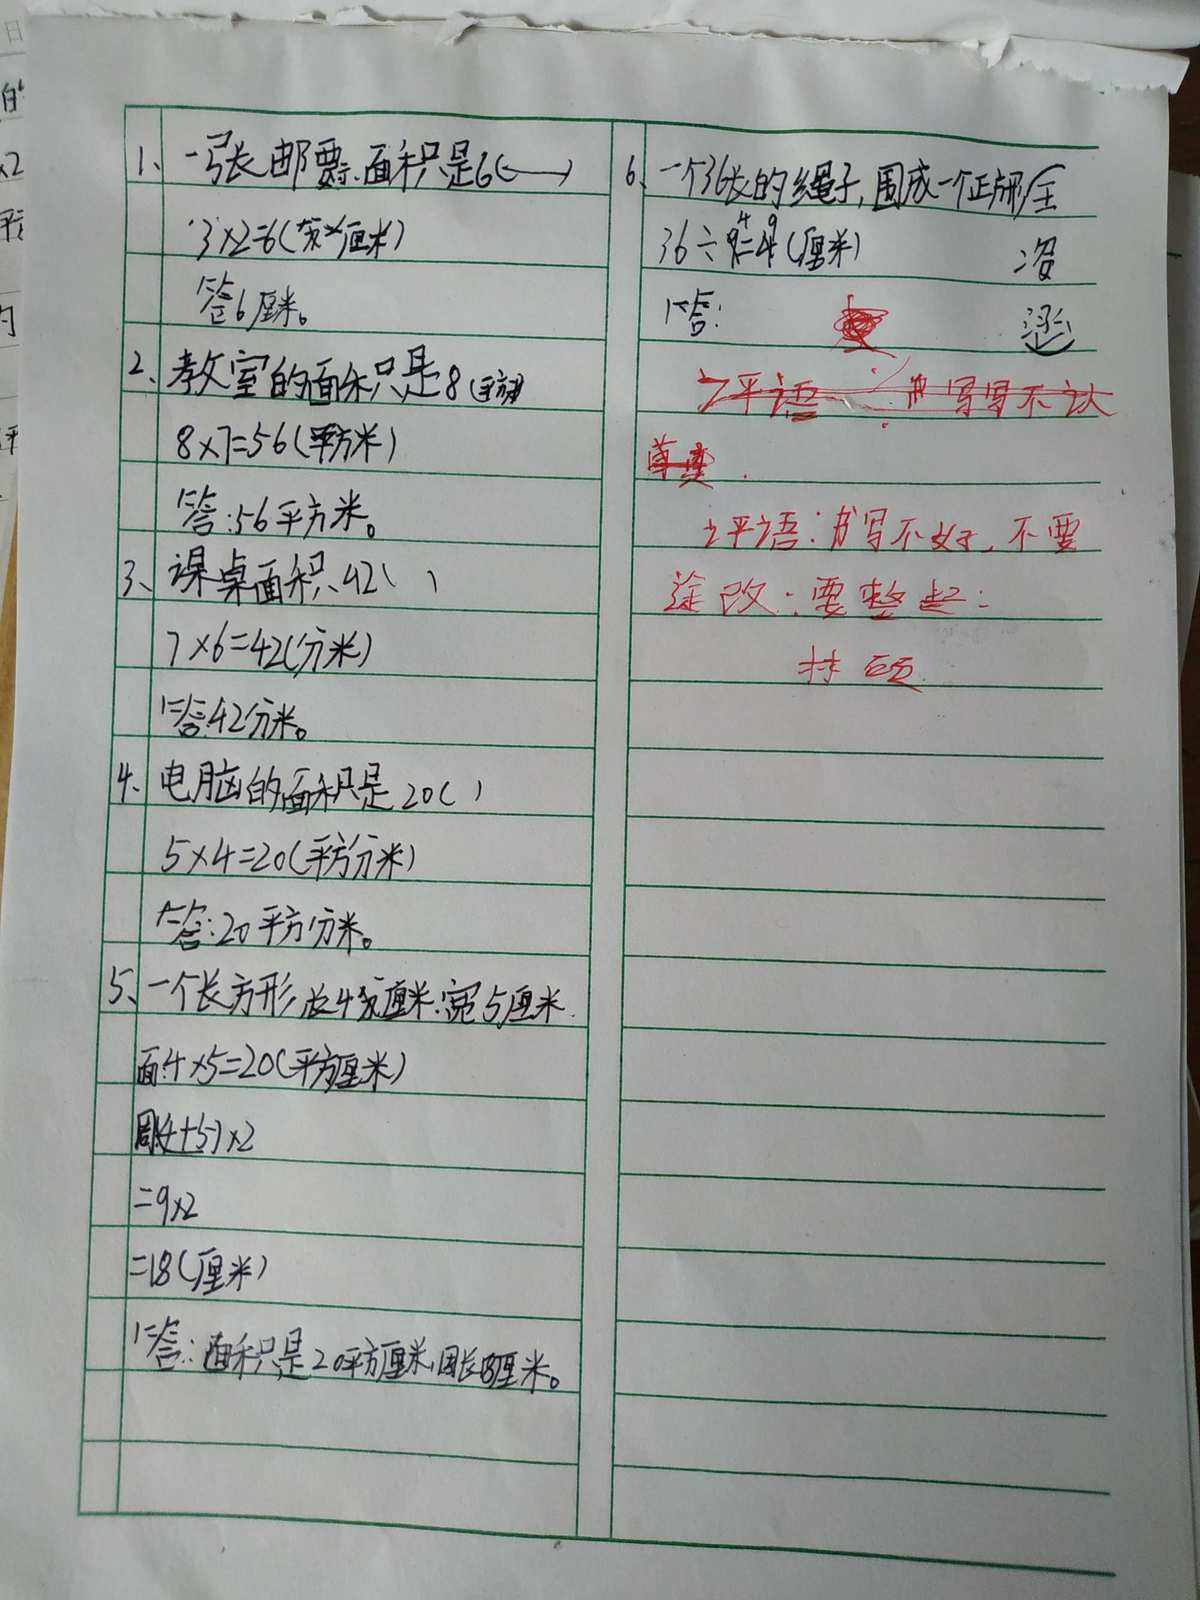 1、一张邮票、面积是6( )
3×2=6(平方厘米)
答6厘米。
2、教室的面积是8(平方米)
8×7=56(平方米)
答:56平方米。
3、课桌面积42( )
7×6=42(分米)
答:42分米。
4、电脑的面积是20( )
5×4=20(平方分米)
答:20平方分米。
5、一个长方形长4厘米.宽5厘米.
面:4×5=20(平方厘米)
周(4+5)×2
=9×2
=18(厘米)
答:面积是20平方厘米,周长18厘米。
6、一个36长的绳子,围成一个正方形
36÷4=9(厘米)
答:
评语 书写写不认
评语:书写不好,不要
涂改:要整起: